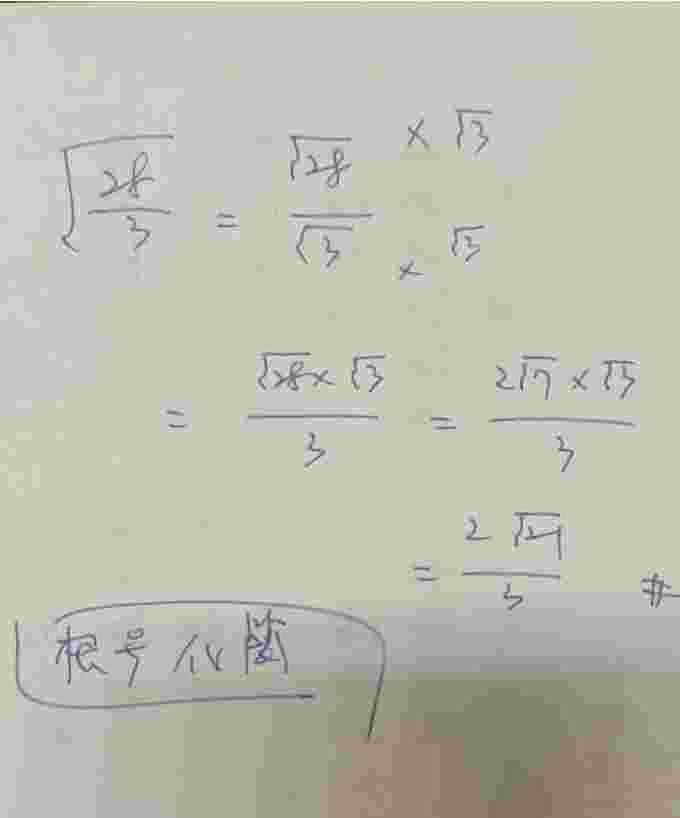 √(28/3) = √28/√3 × √3 / × √3
= √28 × √3 / 3 = 2√7 × √3 / 3
= 2√21 / 3 #
根号化簡